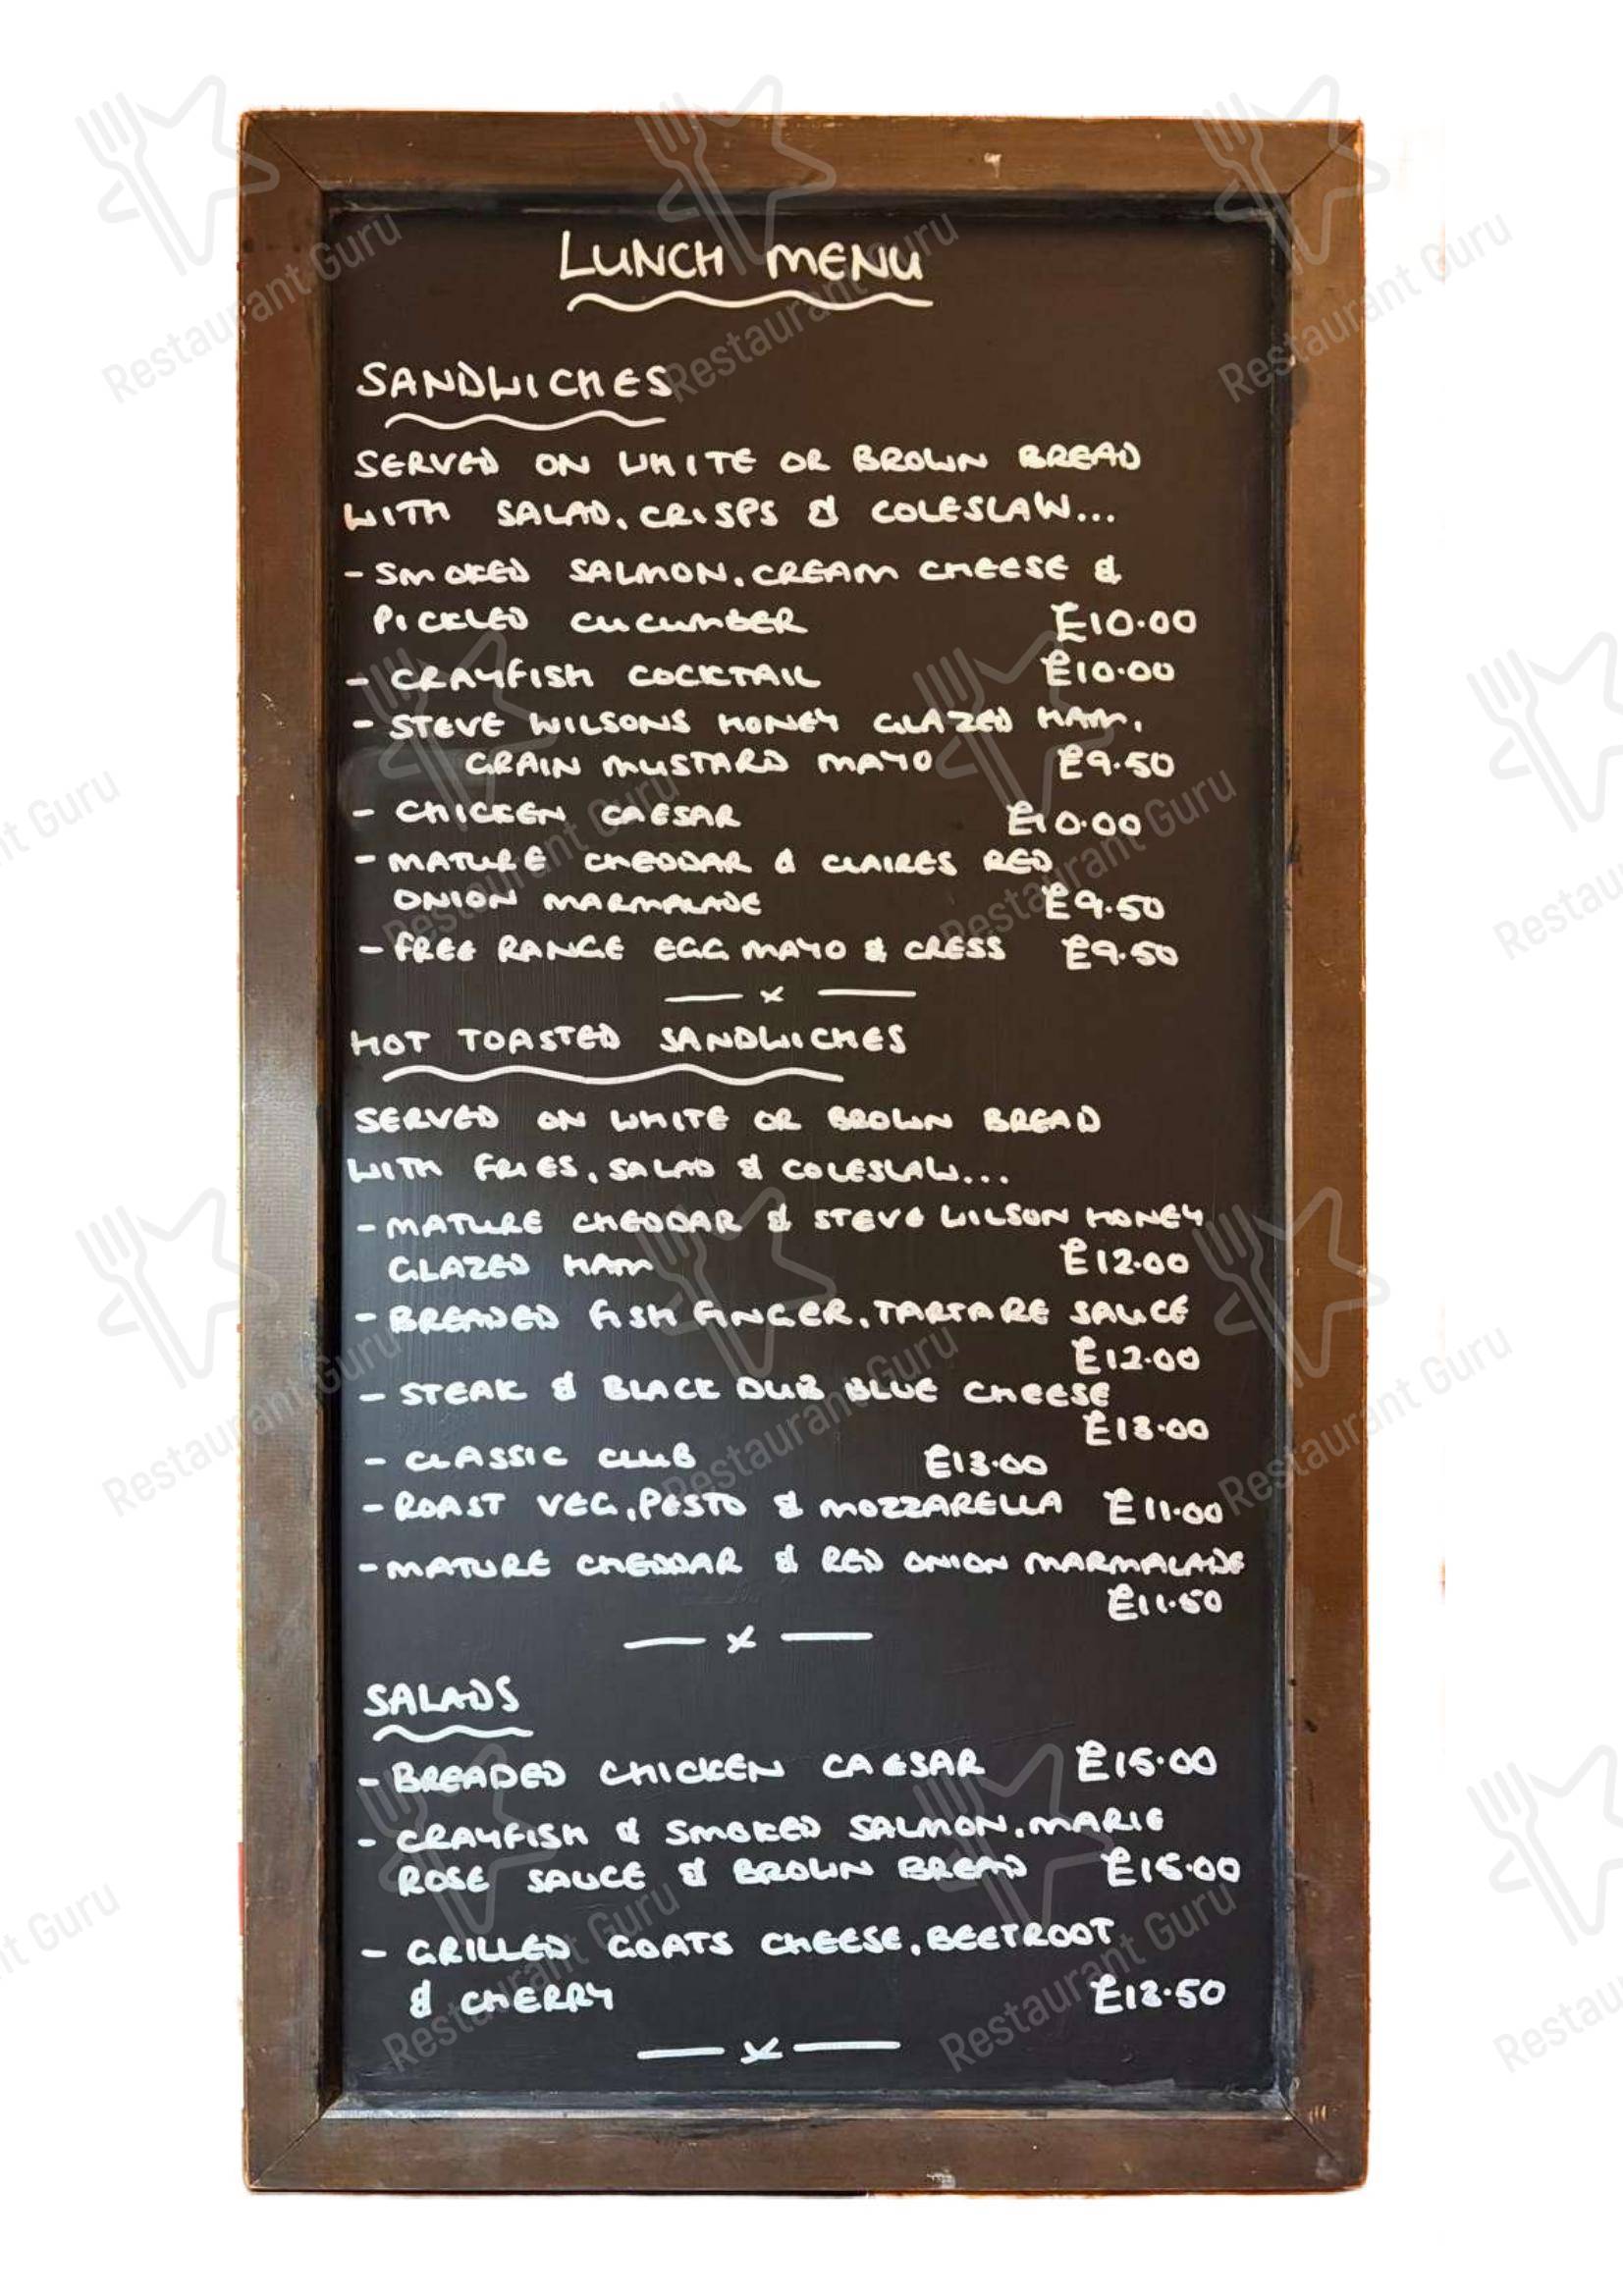 LUNCH MENU
SANDWICHES
SERVED ON WHITE OR BROWN BREAD
WITH SALAD, CRISPS & COLESLAW...
- SMOKED SALMON, CREAM CHEESE &
PICKLED CUCUMBER £10.00
- CRAYFISH COCKTAIL £10.00
- STEVE WILSONS HONEY GLAZED HAM,
GRAIN MUSTARD MAYO £9.50
- CHICKEN CAESAR £10.00
- MATURE CHEDDAR & CLAIRES RED
ONION MARMALADE £9.50
- FREE RANGE EGG MAYO & CRESS £9.50
— x —
HOT TOASTED SANDWICHES
SERVED ON WHITE OR BROWN BREAD
WITH FRIES, SALAD & COLESLAW...
- MATURE CHEDDAR & STEVE WILSON HONEY
GLAZED HAM £12.00
- BREADED FISH FINGER, TARTARE SAUCE
£12.00
- STEAK & BLACK DUB BLUE CHEESE
£13.00
- CLASSIC CLUB £13.00
- ROAST VEG, PESTO & MOZZARELLA £11.00
- MATURE CHEDDAR & RED ONION MARMALADE
£11.50
— x —
SALADS
- BREADED CHICKEN CAESAR £15.00
- CRAYFISH & SMOKED SALMON, MARIE
ROSE SAUCE & BROWN BREAD £15.00
- GRILLED GOATS CHEESE, BEETROOT
& CHERRY £13.50
— x —
Restaurant Guru